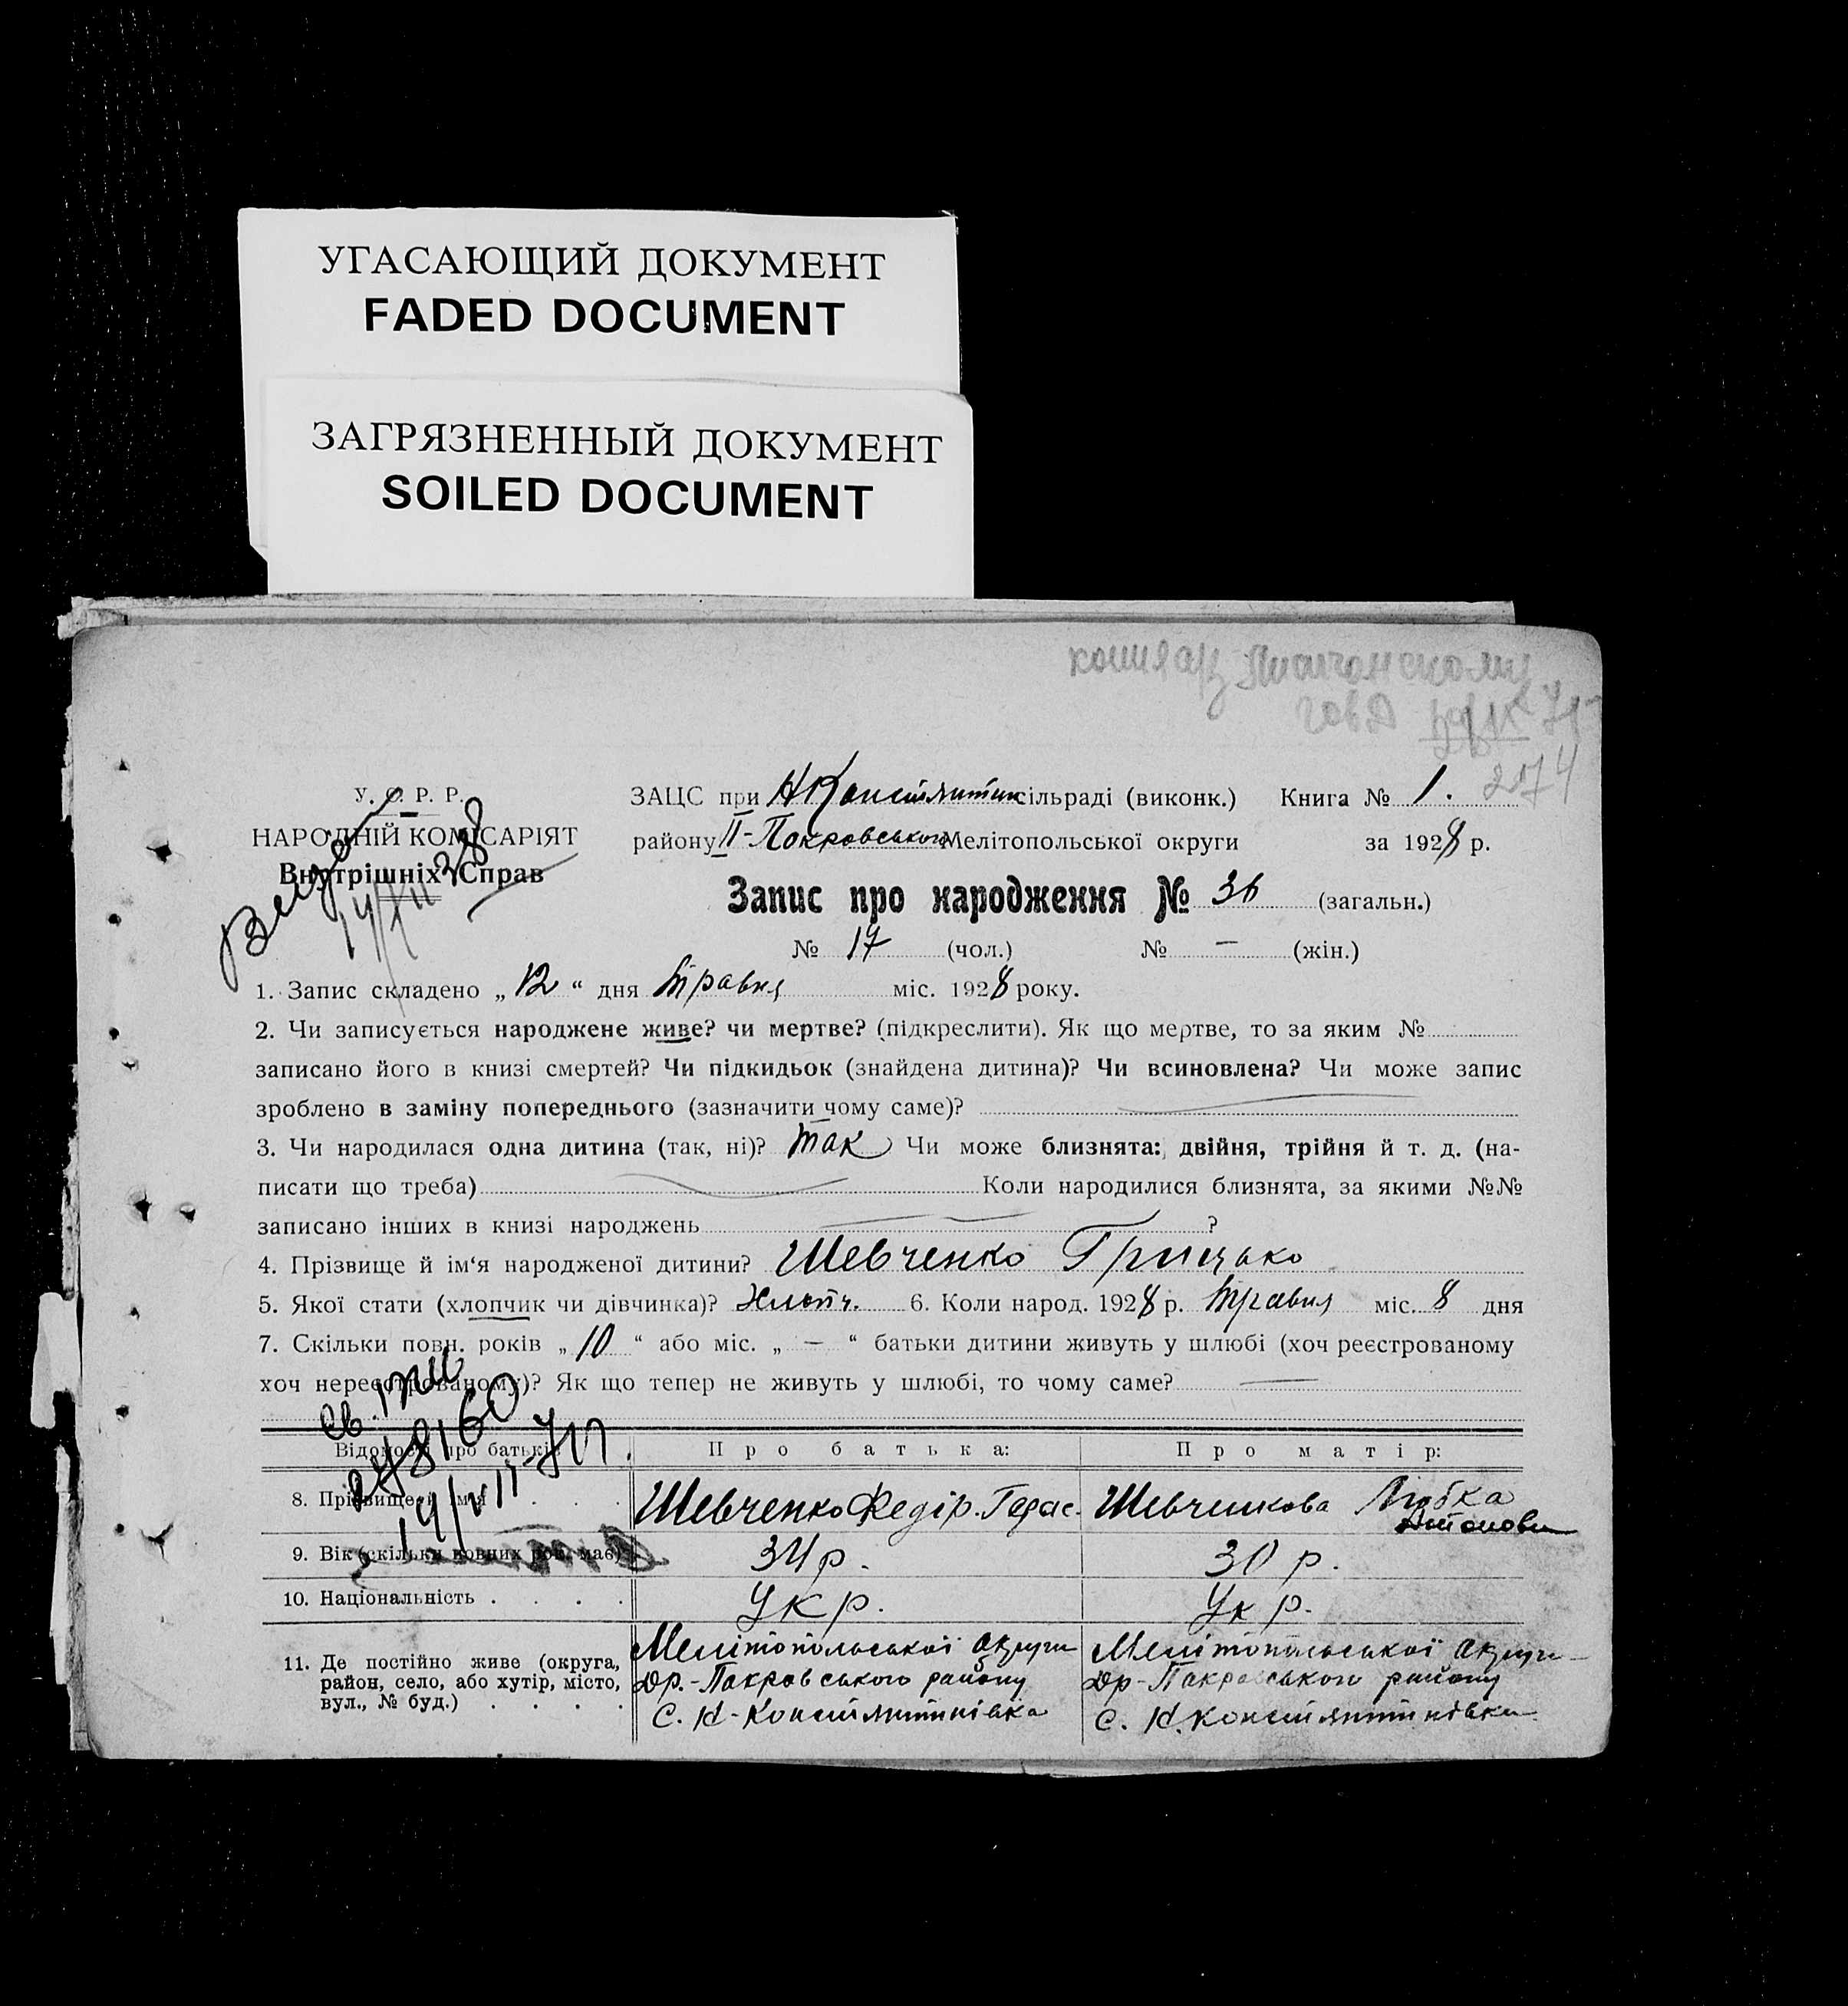 УГАСАЮЩИЙ ДОКУМЕНТ
FADED DOCUMENT
ЗАГРЯЗНЕННЫЙ ДОКУМЕНТ
SOILED DOCUMENT
2174
У. С. Р. Р.
НАРОДНІЙ КОМІСАРІЯТ
Внутрішніх Справ
ЗАЦС при сільраді (виконк.) Книга № 1.
району Покровського Мелітопольської округи за 1928 р.
Запис про народження № 36 (загальн.)
№ 17 (чол.) № — (жін.)
1. Запис складено „12“ дня травня міс. 1928 року.
2. Чи записується народжене живе? чи мертве? (підкреслити). Як що мертве, то за яким №
записано його в книзі смертей? Чи підкидьок (знайдена дитина)? Чи всиновлена? Чи може запис
зроблено в заміну попереднього (зазначити чому саме)?
3. Чи народилася одна дитина (так, ні)? так Чи може близнята: двійня, трійня й т. д. (на-
писати що треба) Коли народилися близнята, за якими №№
записано інших в книзі народжень ?
4. Прізвище й ім‘я народженої дитини? Шевченко Грицько
5. Якої стати (хлопчик чи дівчинка)? Хлопч. 6. Коли народ. 1928 р. травня міс. 8 дня
7. Скільки повн. років „10“ або міс. „—“ батьки дитини живуть у шлюбі (хоч реєстрованому
хоч нереєстрованому)? Як що тепер не живуть у шлюбі, то чому саме? —
248160
Відомості про батьків Про батька: Про матір:
8. Прізвище й ім‘я . . . Шевченко Федір. Герас. Шевченкова Любка
9. Вік (скільки повних рок. має) 34 р. 30 р.
10. Національність . . . . Укр. Укр.
11. Де постійно живе (округа, район, село, або хутір, місто, вул., № буд.) . . . .
Мелітопольської округи Мелітопольської округи
Др.-Покровського району Др-Покровського району
с. Н-Константинівка с. Н. Константинівка